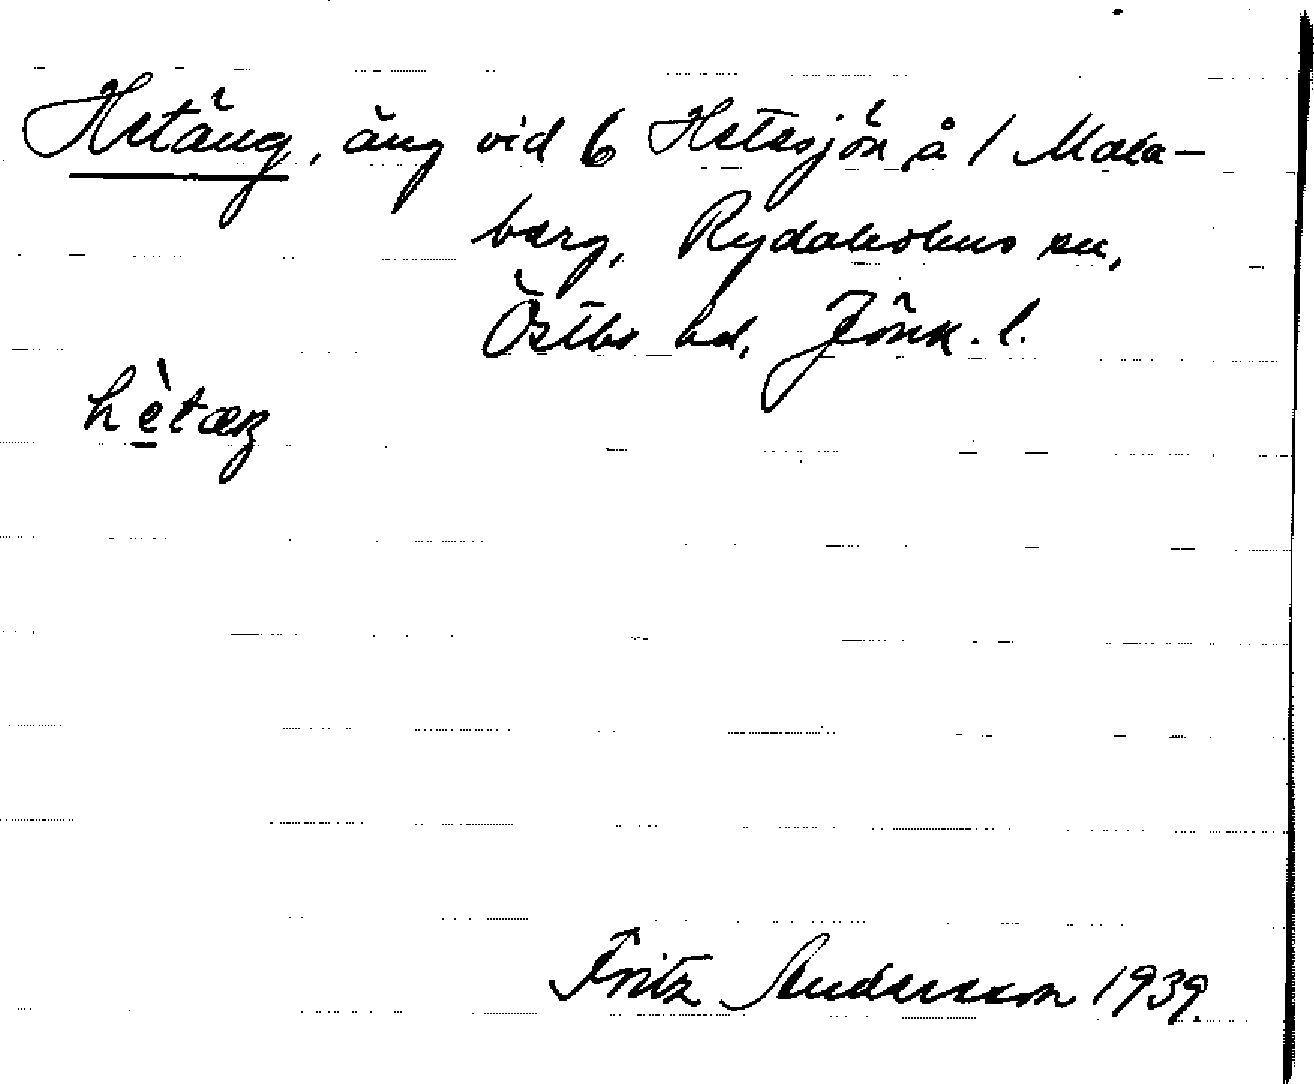 Hetäng, äng vid 6 Hetesjön å 1 Mala-
berg, Rydaholms sn,
Östbo hd, Jönk. l.
hètæŋ
Fritz Andersson 1939.